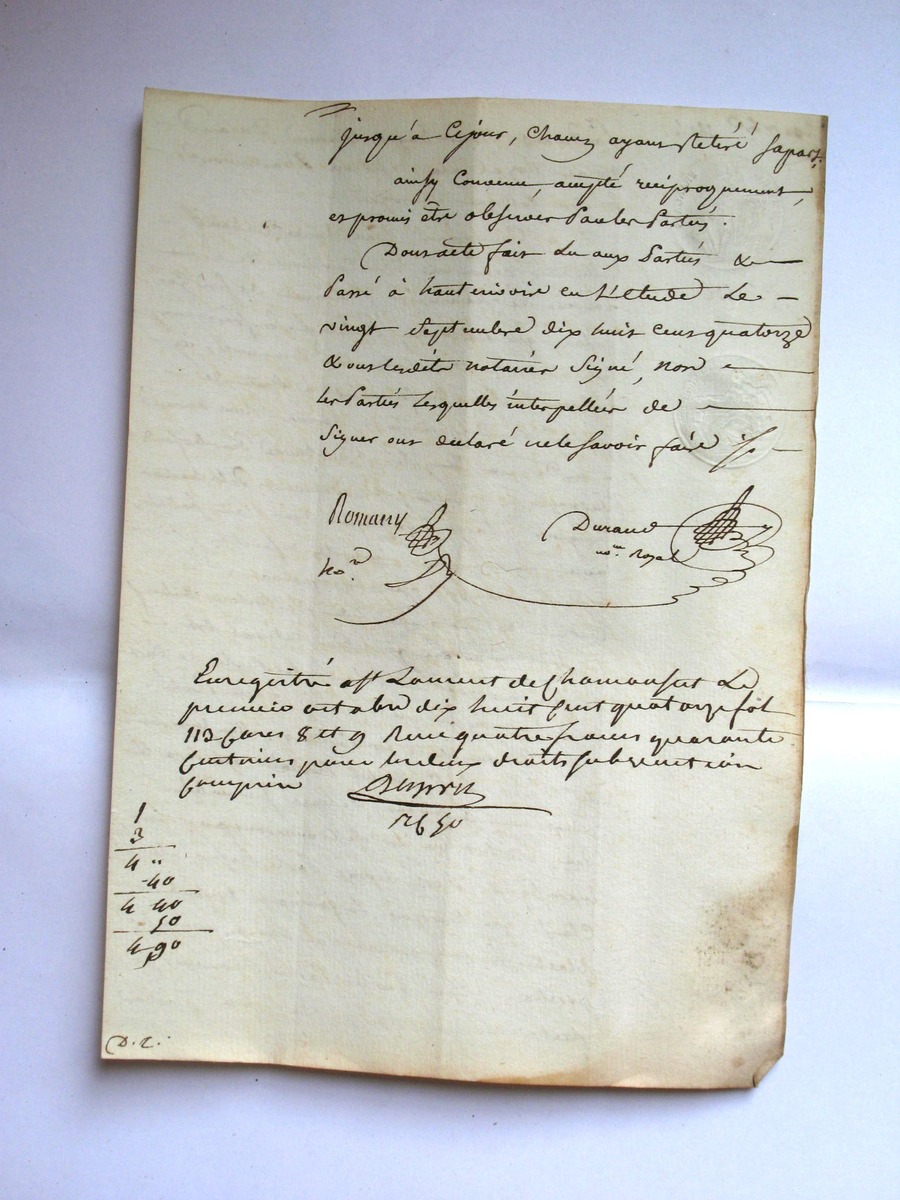 jusqu'à Cejour, Chacun ayant Retiré sapart,
ainsy Convenu, accepté réciproquement,
et promis être observer Par les Partiés.
Dont acte fait Lu aux Partiés &
Passé à hauterivoire en L'étude Le
vingt Septembre dix huit cent quatorze
& ont lesdits notaires Signé, non
les Partiés Lesquelles interpellées de
Signer ont declaré ne le Savoir faire
Romany
no.re
Durand
no.re Royal
Enregistré a St Laurent de Chamousset Le
premier octobre dix huit Cent quatorze fol
113 Cases 8 et 9 Reçu quatre francs quarante
Centimes pour les deux droits subvention
Comprise
1
3
4 "
40
4 40
50
4 90
D. r.